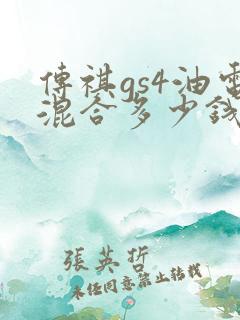 傳祺gs4油電
混合多少錢
張英哲
未經同意禁止轉載